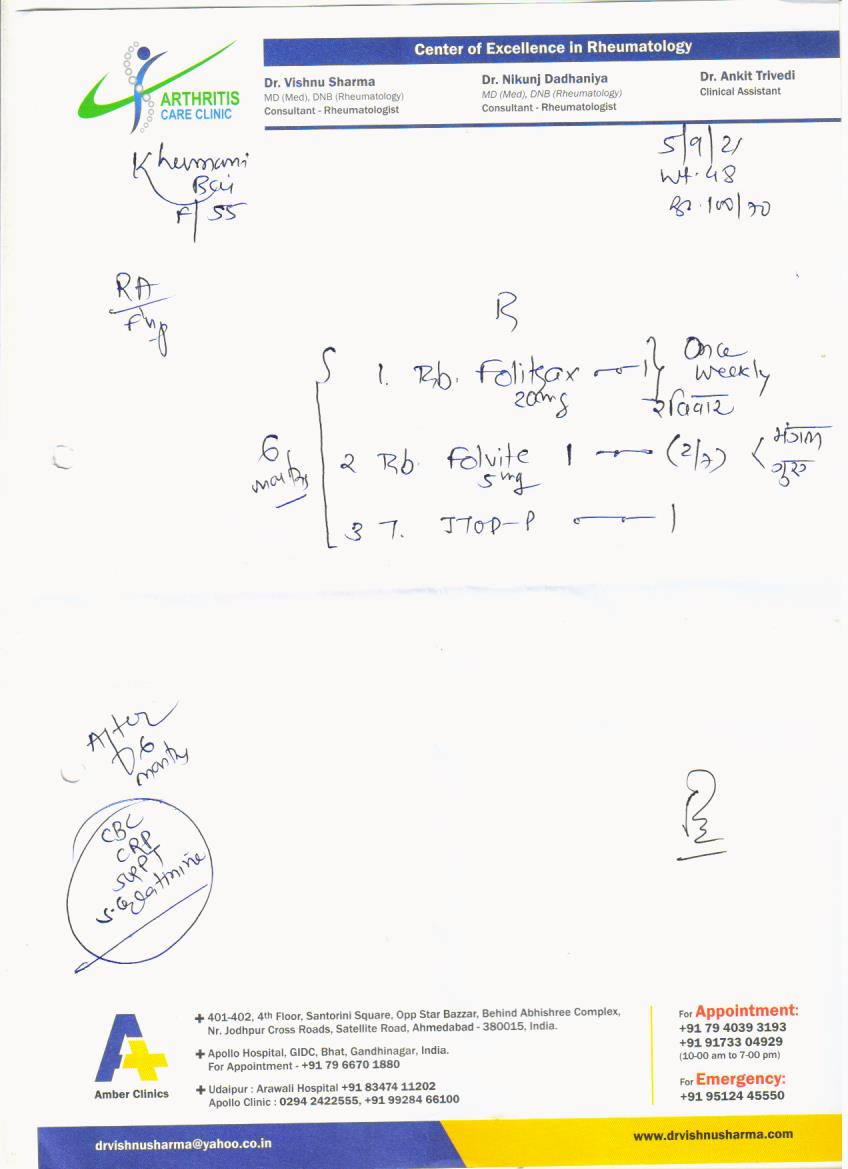 Center of Excellence in Rheumatology
ARTHRITIS
CARE CLINIC
Dr. Vishnu Sharma
MD (Med), DNB (Rheumatology)
Consultant - Rheumatologist
Dr. Nikunj Dadhaniya
MD (Med), DNB (Rheumatology)
Consultant - Rheumatologist
Dr. Ankit Trivedi
Clinical Assistant
Khemani
Bai
F/55
5/9/21
Wt. 48
100/70
RA
1. Folitrax 1 Once
20mg weekly
रविवार
6 months
2 Folvite 1 (2/7) < मंगल
5mg गुरु
3 T. JTOP-P 1
After
6
months
CBC
CRP
SGPT
S. Creatinine
Amber Clinics
401-402, 4th Floor, Santorini Square, Opp Star Bazzar, Behind Abhishree Complex,
Nr. Jodhpur Cross Roads, Satellite Road, Ahmedabad - 380015, India.
Apollo Hospital, GIDC, Bhat, Gandhinagar, India.
For Appointment - +91 79 6670 1880
Udaipur : Arawali Hospital +91 83474 11202
Apollo Clinic : 0294 2422555, +91 99284 66100
For Appointment:
+91 79 4039 3193
+91 91733 04929
(10-00 am to 7-00 pm)
For Emergency:
+91 95124 45550
drvishnusharma@yahoo.co.in
www.drvishnusharma.com